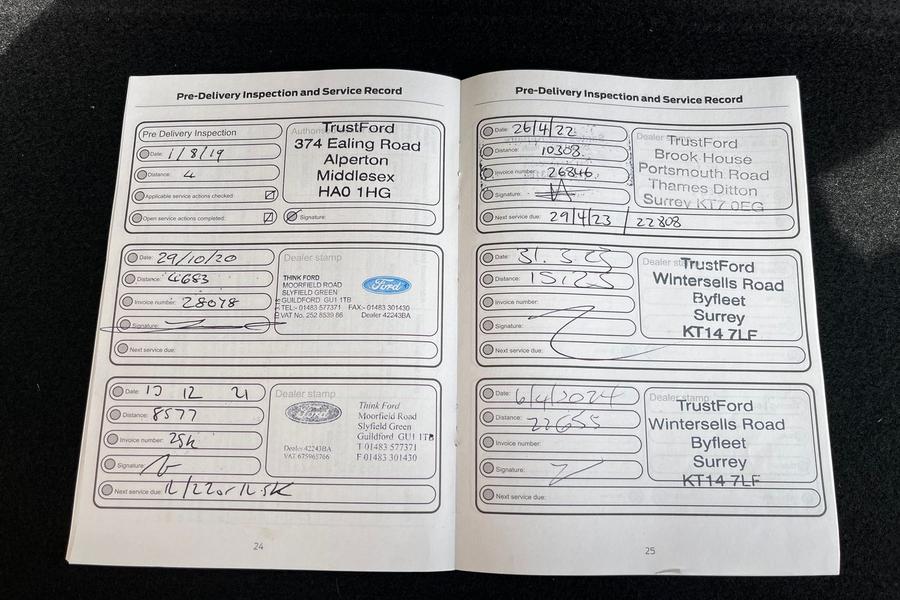 Pre-Delivery Inspection and Service Record
Pre Delivery Inspection
Date: 1/8/19
Distance: 4
Applicable service actions checked:
Open service actions completed:
TrustFord
374 Ealing Road
Alperton
Middlesex
HA0 1HG
Signature:
Date: 29/10/20
Distance: 4683
Invoice number: 28078
Signature:
Next service due:
Dealer stamp
THINK FORD
MOORFIELD ROAD
SLYFIELD GREEN
GUILDFORD GU1 1TB
TEL:- 01483 577371 FAX:- 01483 301430
VAT No. 252 8539 86 Dealer 42243BA
Ford
Date: 13 12 21
Distance: 8577
Invoice number:
Signature:
Next service due: 12/22 or 12.5K
Dealer stamp
Ford
Dealer 42243BA
VAT 675965766
Think Ford
Moorfield Road
Slyfield Green
Guildford GU1 1TB
T 01483 577371
F 01483 301430
24
Pre-Delivery Inspection and Service Record
Date: 26/4/22
Distance: 10308
Invoice number: 26846
Signature:
Next service due: 29/4/23 / 22808
Dealer
TrustFord
Brook House
Portsmouth Road
Thames Ditton
Surrey KT7 0EG
Date: 31.3.23
Distance: 15123
Invoice number:
Signature:
Next service due:
Dealer
TrustFord
Wintersells Road
Byfleet
Surrey
KT14 7LF
Date: 6/4/2024
Distance: 22655
Invoice number:
Signature:
Next service due:
Dealer stamp
TrustFord
Wintersells Road
Byfleet
Surrey
KT14 7LF
25